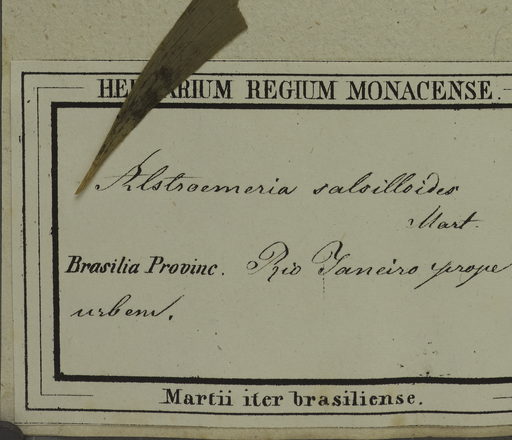 HERBARIUM REGIUM MONACENSE.
Alstroemeria salsilloides
Mart.
Brasilia Provinc. Rio Janeiro prope
urbem.
Martii iter brasiliense.